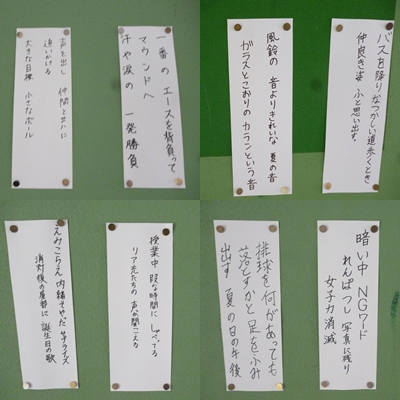 一番の エースを背負って
マウンドへ
汗や涙の 一発勝負
声を出し 仲間と共に
追いかける
大きな目標 小さなボール
バスを降りなつかしい道歩くとき
仲良き姿 ふと思い出す。
風鈴の 音よりきれいな 夏の音
ガラスとこおりの カランという音
授業中 暇な時間に しゃべってる
リア充たちの 声が聞こえる
えみこらえ 内緒でやった サプライズ
消灯後の部屋に 誕生日の歌
暗い中 NGワード
れんぱつし 写真に残り
女子力消滅
排球を何があっても
落とすかと 足をふみ
出す 夏の日の午後